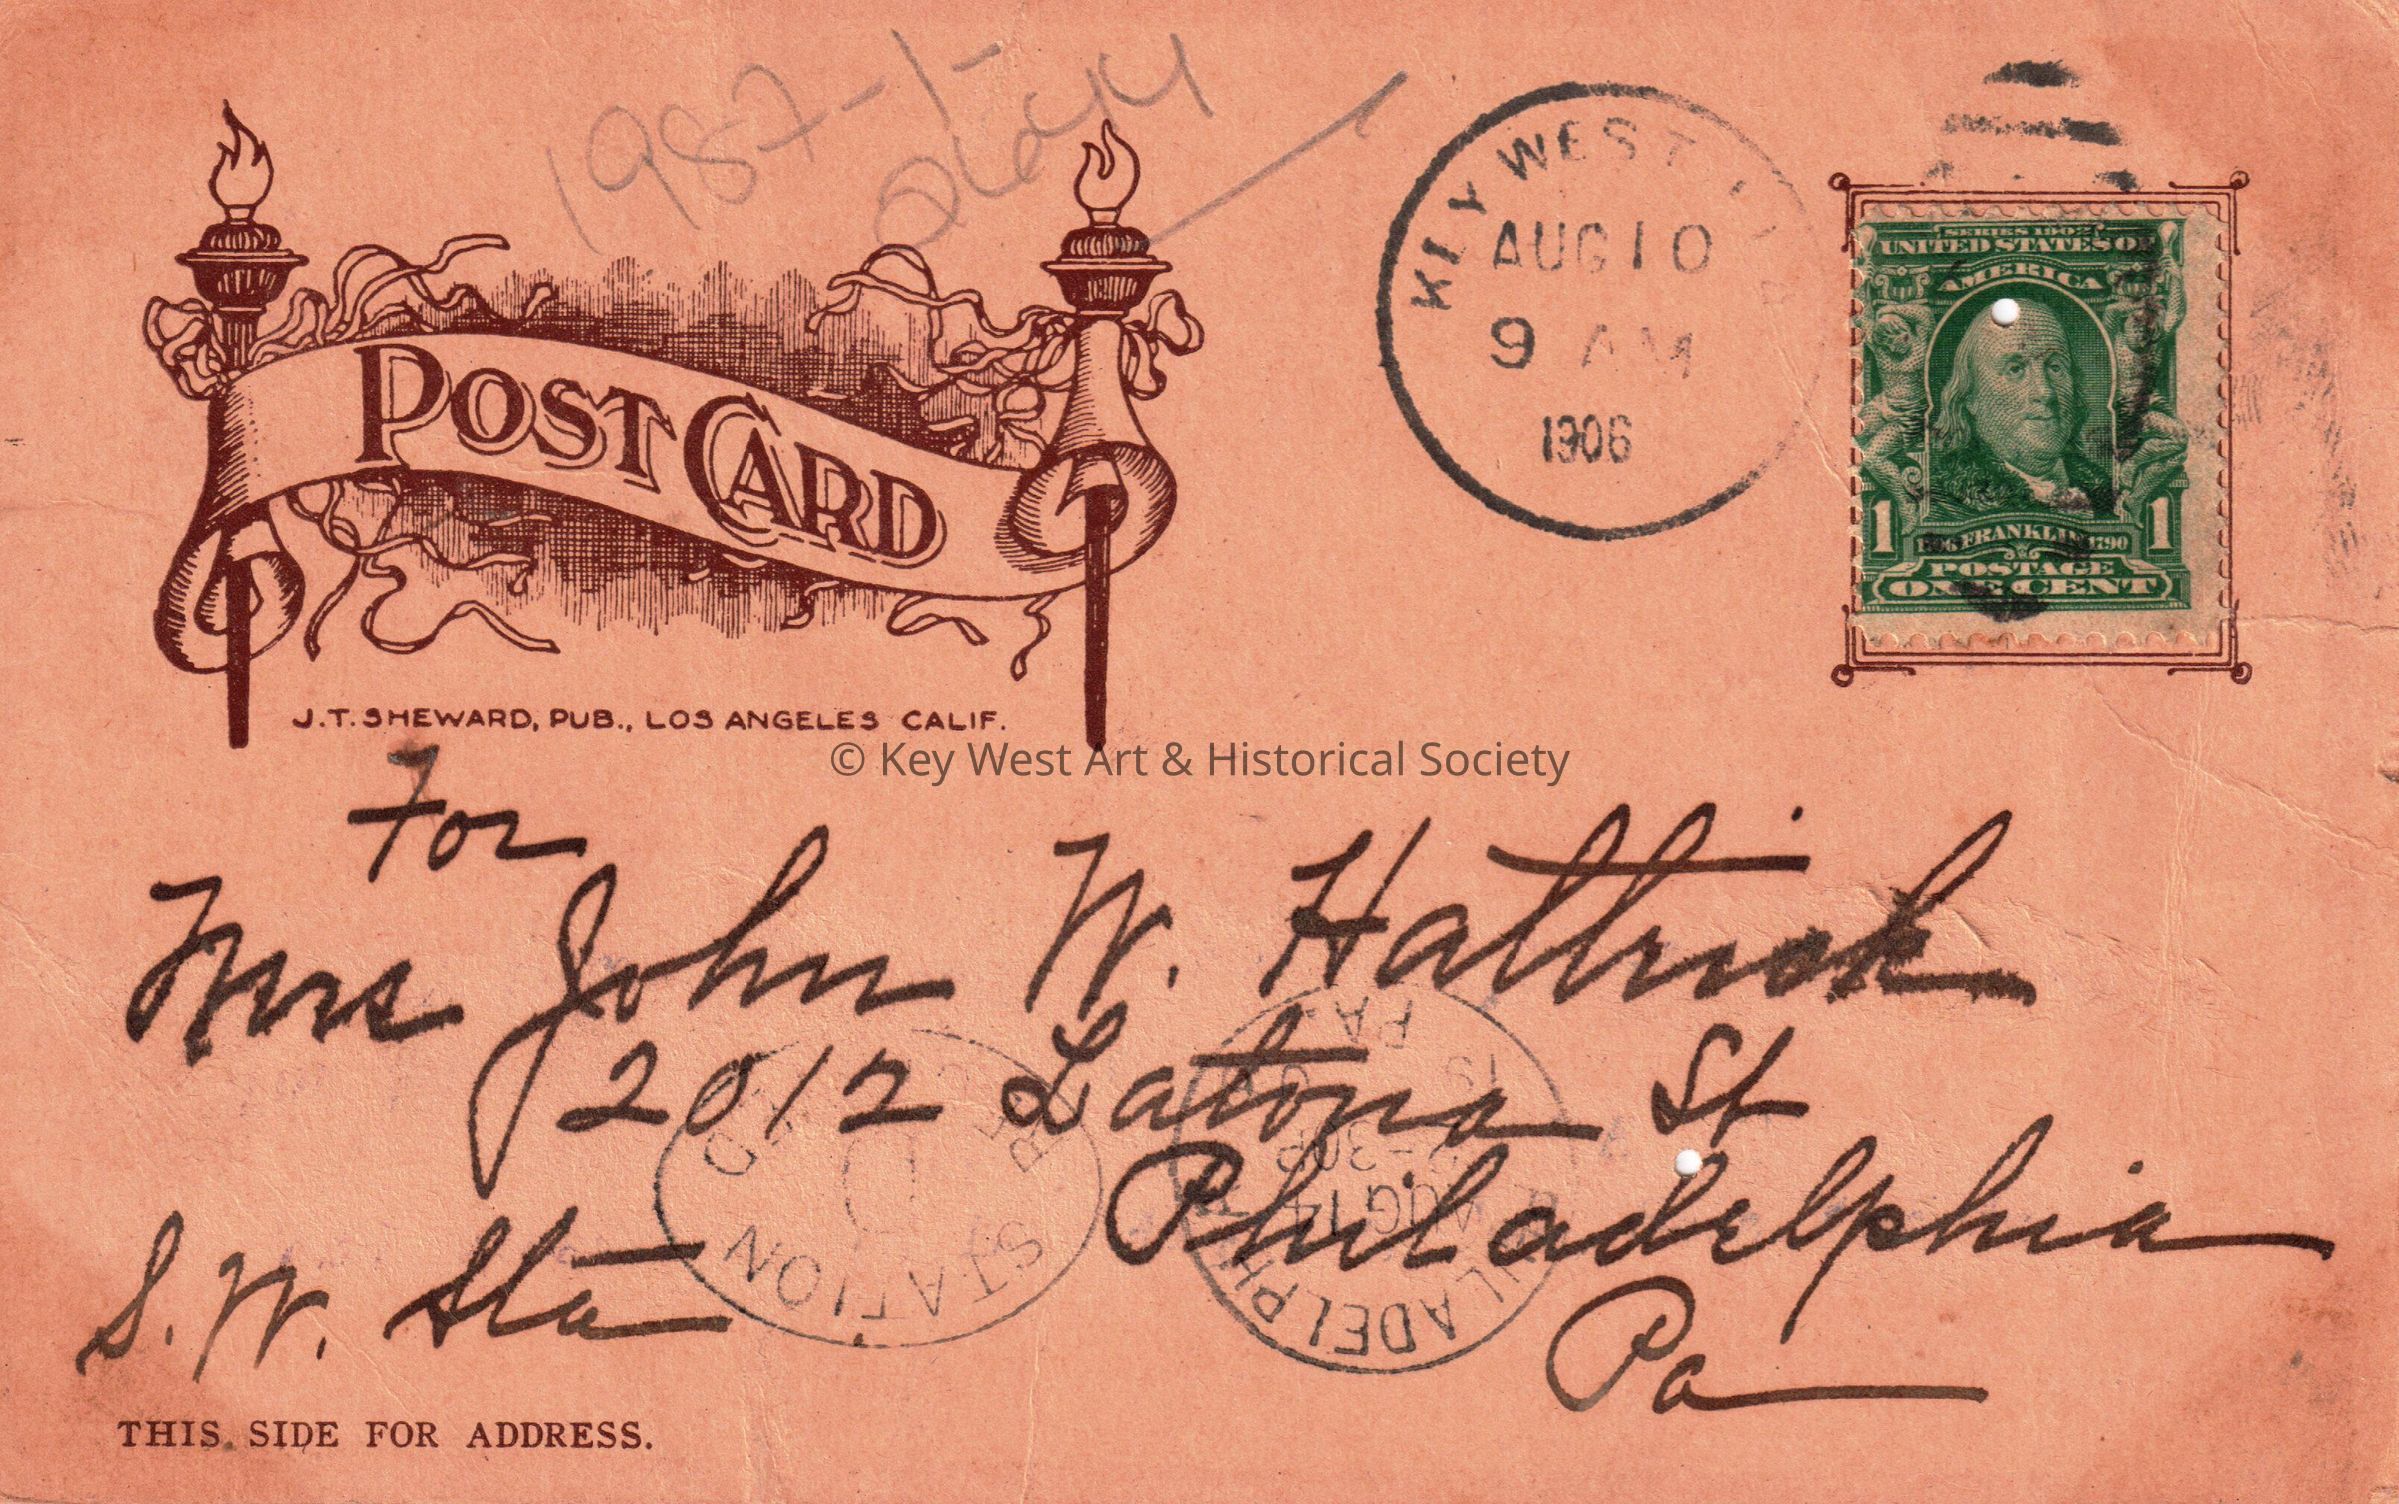 1987-1-
KEY WEST
AUG 10
9 AM
1906
SERIES 1902
UNITED STATES OF
AMERICA
1 1706 FRANKLIN 1790 1
POSTAGE
ONE CENT
POST CARD
J.T. SHEWARD, PUB., LOS ANGELES CALIF.
© Key West Art & Historical Society
For
Mrs John W. Hattrick
2012 Latona St
Philadelphia
S. W. Sta
Pa
STATION
D
PHILADELPHIA
AUG 14
-30P
19
PA.
THIS SIDE FOR ADDRESS.